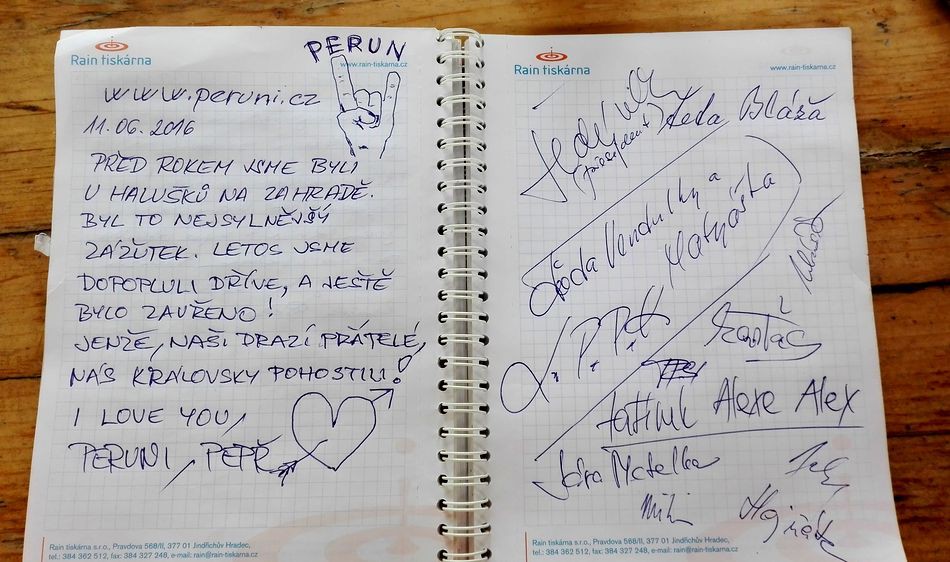 Rain tiskárna
PERUN
www.rain-tiskarna.cz
www.peruni.cz
11.06.2016
PŘED ROKEM JSME BYLI
U HALUŠKŮ NA ZAHRADĚ.
BYL TO NEJSYLNĚJŠÝ
ZÁŽUTEK. LETOS JSME
DOPOPLULI DŘÍVE, A JEŠTĚ
BYLO ZAVŘENO!
JENŽE, NAŠI DRAZÍ PŘÁTELÉ,
NÁS KRÁLOVSKY POHOSTILI!
I LOVE YOU,
PERUNI, PEPŘ
Rain tiskárna s.r.o., Pravdova 568/II, 377 01 Jindřichův Hradec,
tel.: 384 362 512, fax: 384 327 248, e-mail: rain@rain-tiskarna.cz
Rain tiskárna
www.rain-tiskarna.cz
Bláža
Vendulky a
Matyáška
J.P.P.H
Alexe Alex
Jára Matelka
Rain tiskárna s.r.o., Pravdova 568/II, 377 01 Jindřichův Hradec,
tel.: 384 362 512, fax: 384 327 248, e-mail: rain@rain-tiskarna.cz